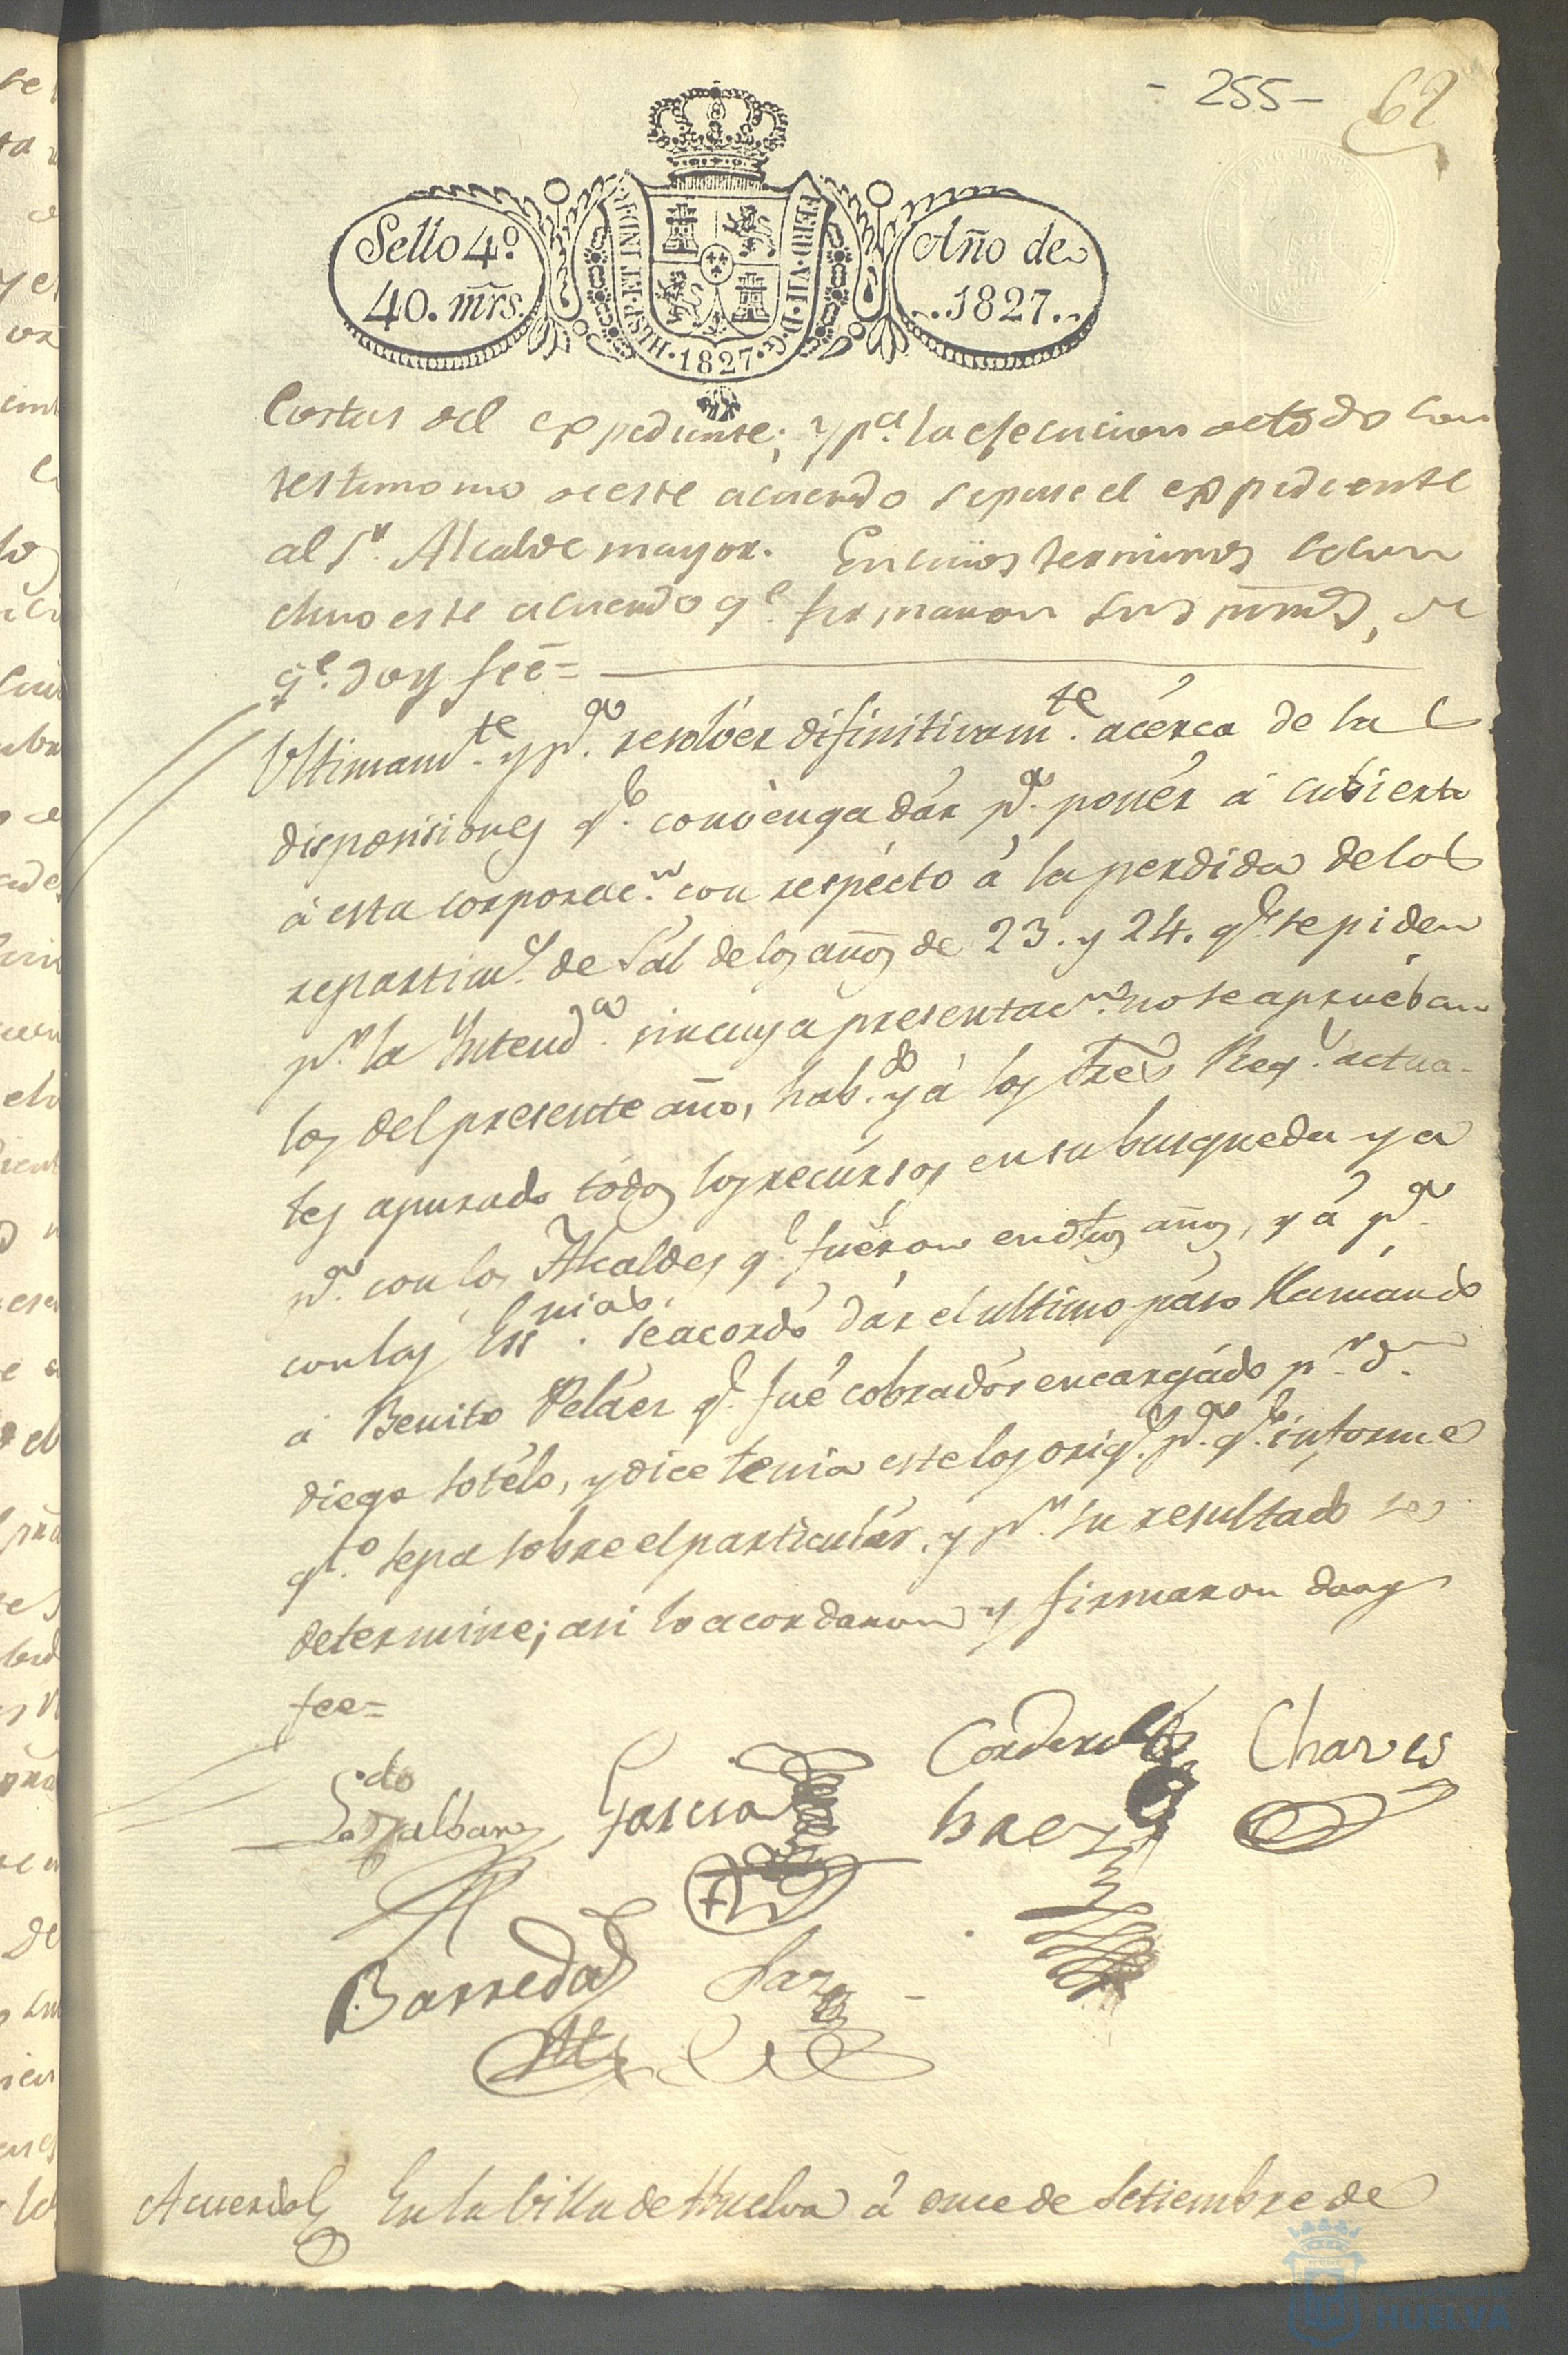 - 255 -
62
Sello 4º
40. mrs.
HISP. ET IND. R.
FERD. VII. D. G.
1827
Año de
1827.
Costas del expediente; y pª la efecucion de todo con
testimonio de este acuerdo se pase el expediente
al Sr. Alcalde mayor. En cuios terminos se con
cluio este acuerdo qe. firmaron sus mrds, de
qe. doy feé =
Ultimamte. y pª. resolvér difinitivamte. acérca de las
disposisiones qe. convenga dár pª. ponér á cubierto
á esta corporacn. con respécto á la perdida de los
repartims. de Sal de los años de 23. y 24. qe. se piden
pr. la Yntendª. sin cuya presentacn. no se aprueban
los del presente año, habdo. yá los tres Regs. actua-
les apurado tódos los recúrsos en su busqueda ya
pª. con los Alcaldes qe. fuéron en dhos años, yá pª.
con las Essnias. se acordó dár el ultimo páso llamando
á Benito Peláez qe. fué cobradór encargádo pr. dn.
diego Sotélo, y dice tenia este los origs. pª. qe. informe
qto. sepa sobre el particulár. y pr. su resultado se
determine; asi lo acordaron y firmaron doy
fee =
Ldo. Galban
Garcia
Cordero
Chaves
Baez
Barreda
Paz
Acuerdo
En la Villa de Huelva á once de Setiembre de
HUELVA